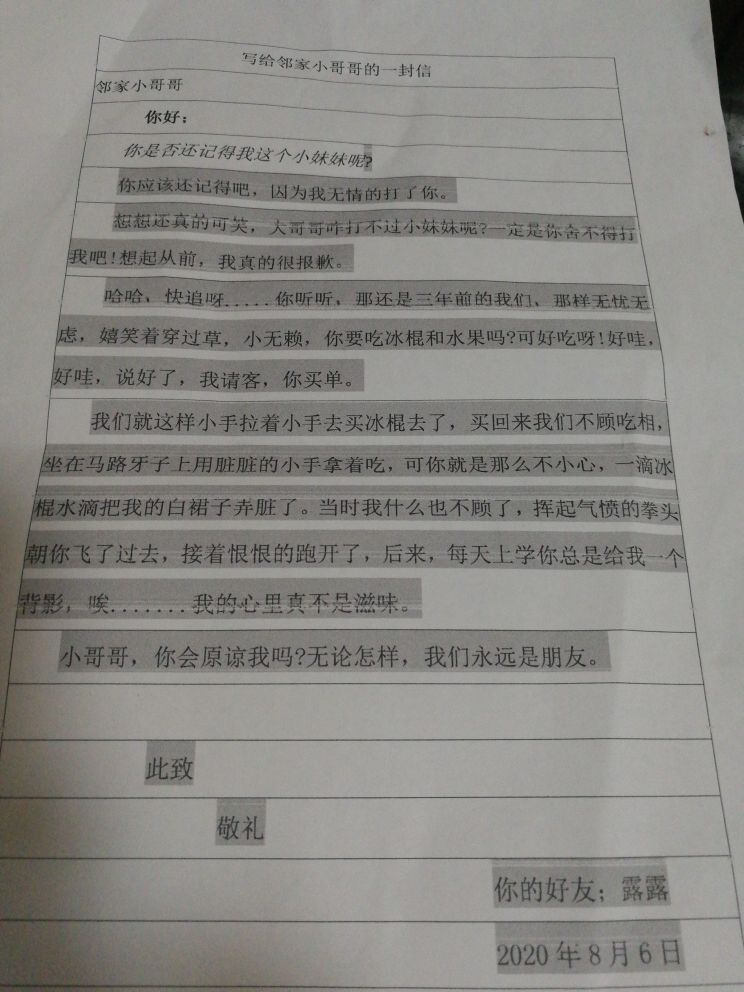 写给邻家小哥哥的一封信
邻家小哥哥
你好；
你是否还记得我这个小妹妹呢?
你应该还记得吧，因为我无情的打了你。
想想还真的可笑，大哥哥咋打不过小妹妹呢?一定是你舍不得打
我吧!想起从前，我真的很报歉。
哈哈、快追呀.....你听听，那还是三年前的我们、那样无忧无
虑，嬉笑着穿过草，小无赖，你要吃冰棍和水果吗?可好吃呀!好哇，
好哇，说好了，我请客，你买单。
我们就这样小手拉着小手去买冰棍去了，买回来我们不顾吃相，
坐在马路牙子上用脏脏的小手拿着吃，可你就是那么不小心，一滴冰
棍水滴把我的白裙子弄脏了。当时我什么也不顾了，挥起气愤的拳头
朝你飞了过去，接着恨恨的跑开了，后来，每天上学你总是给我一个
背影，唉.......我的心里真不是滋味。
小哥哥，你会原谅我吗?无论怎样，我们永远是朋友。
此致
敬礼
你的好友；露露
2020年8月6日